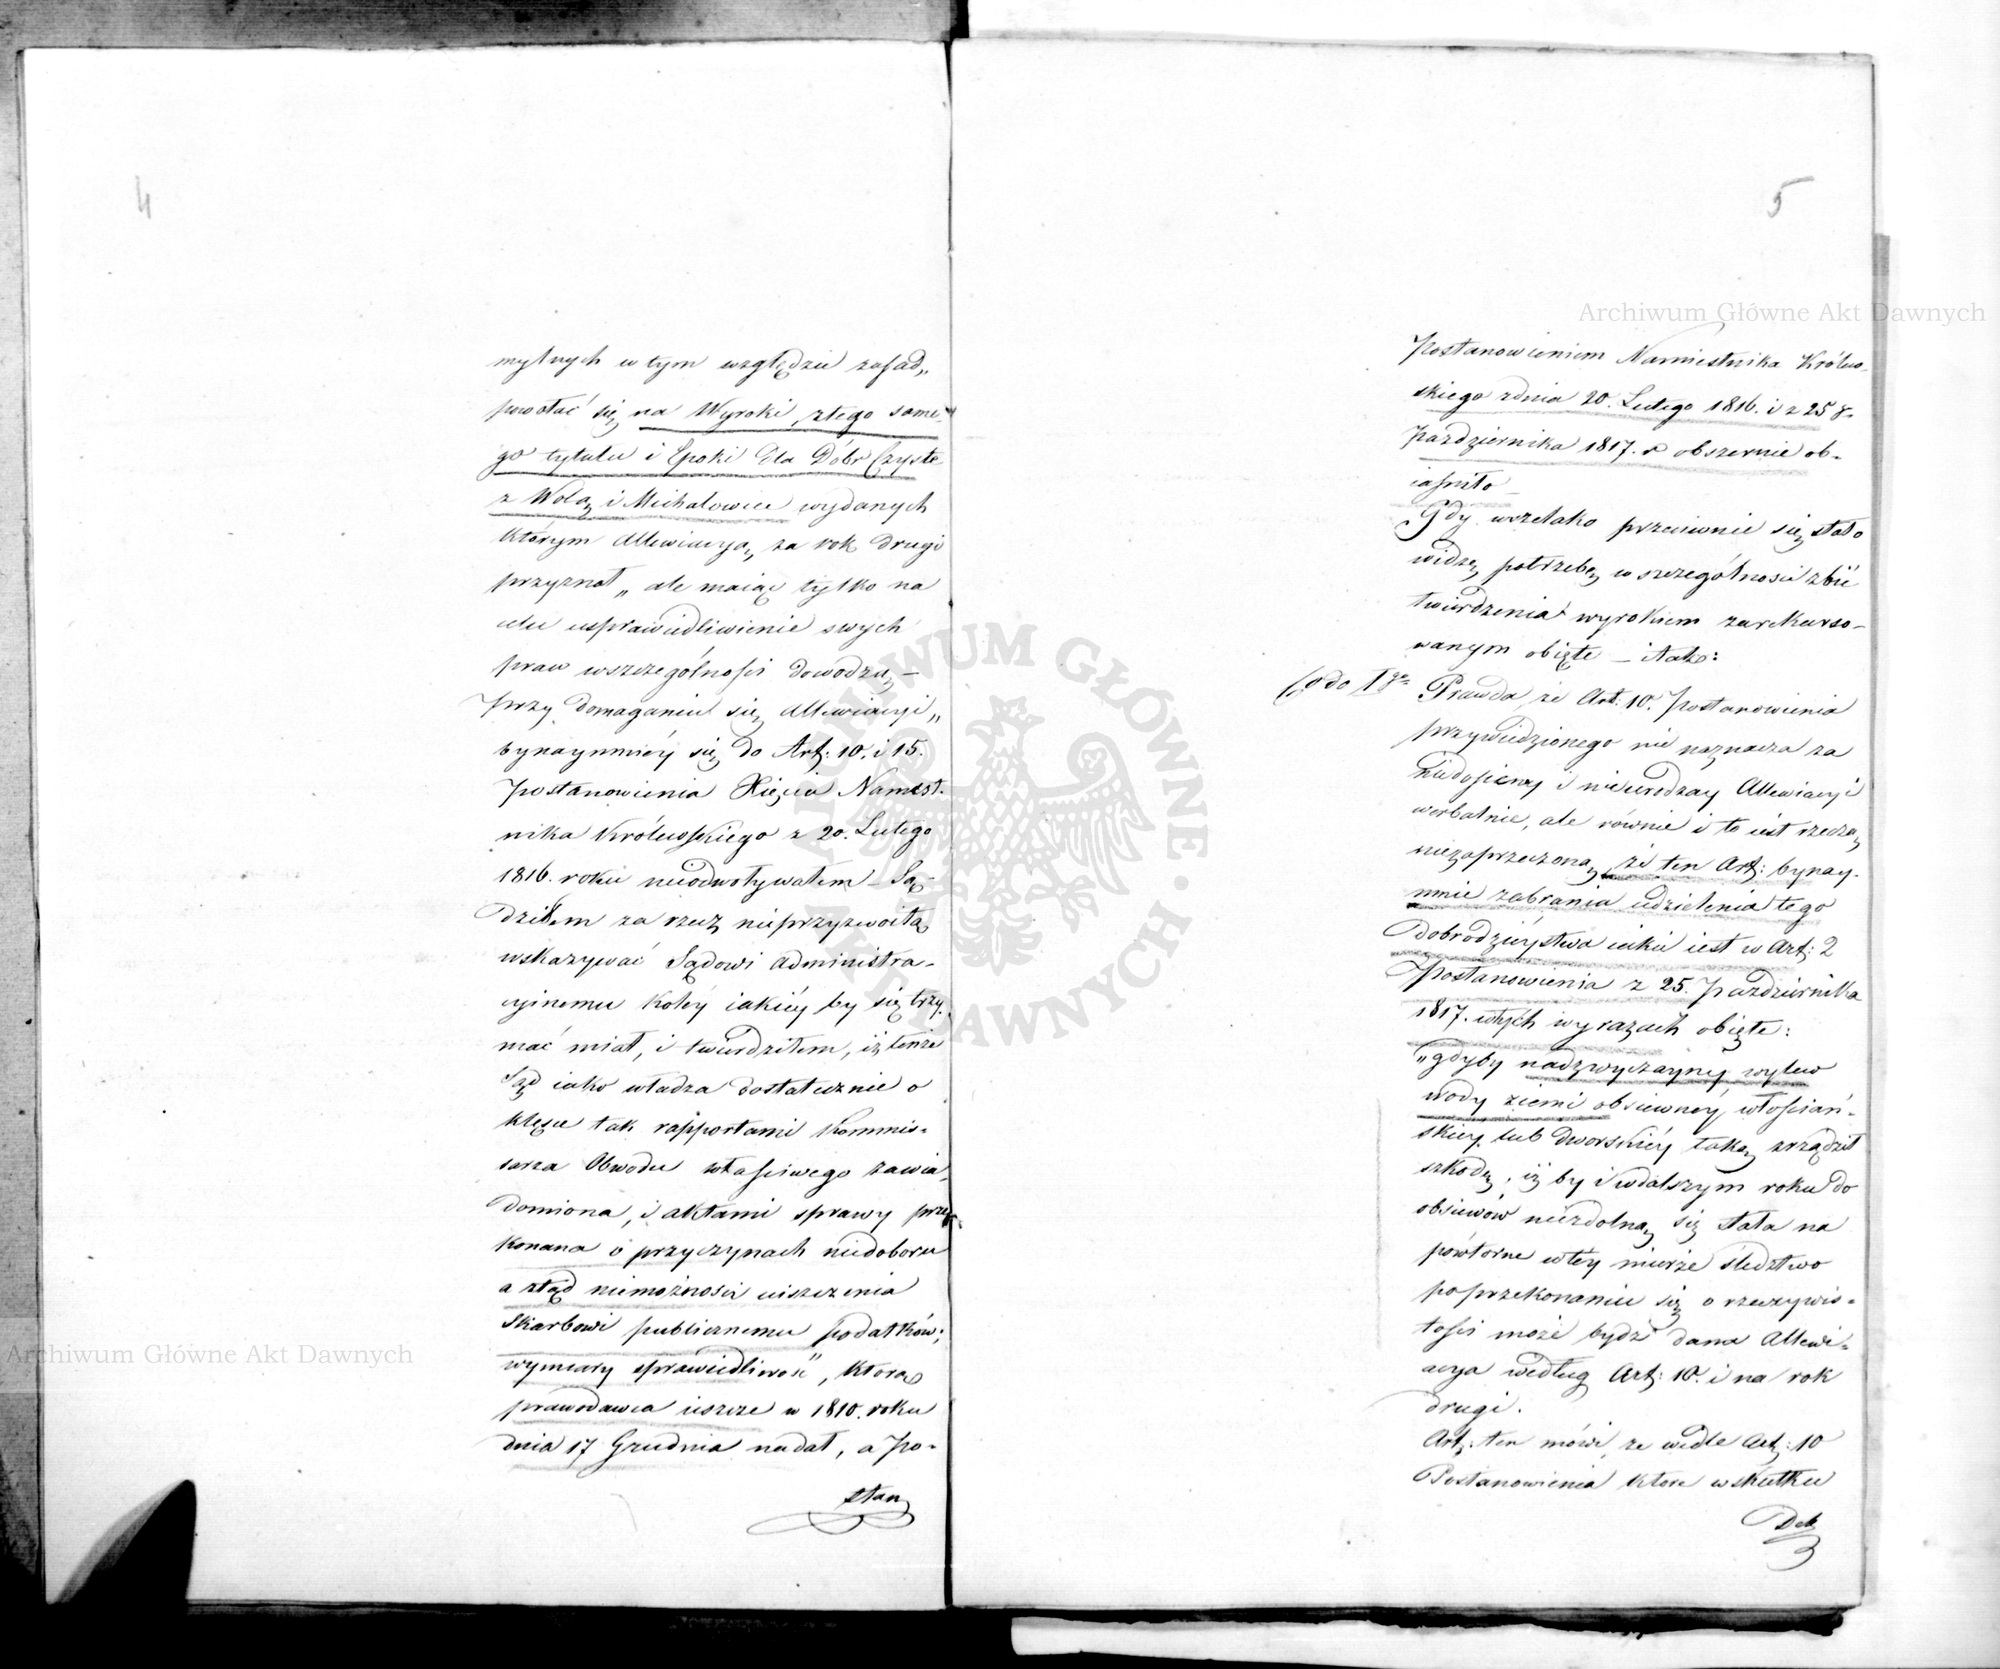 4
mylnych w tym względzie zasad„
powołać się na Wyroki, z tego same-
go tytułu i Epoki dla Dóbr Czyste
z Wolą i Michałowice wydanych
którym Allewiacyą za rok drugi
przyznał„ ale maiąc tylko na
celu usprawiedliwienie swych
praw wszczególności dowodzą —
przy domaganiu się Allewiacyi„
bynaymniéy się do Art: 10. i 15.
Postanowienia Xięcia Namiest-
nika Królewskiego z 20. Lutego
1816. roku nieodwoływałem — Są-
dziłem za rzecz nieprzyzwoitą
wskazywać Sądowi Administra-
cyinemu koléy iakiéy by się trzy-
mać miał, i twierdziłem, iż tenże
Sąd iako władza dostatecznie o
klęsce tak rapportami Kommis-
sarza Obwodu właściwego zawia-
domiona, i aktami sprawy prze-
konana o przyczynach niedoboru
a ztąd niemożności uiszczenia
Skarbowi publicznemu podatków;
wymiary sprawiedliwość, którą
prawodawca ieszcze w 1810. roku
dnia 17 Grudnia nadał, a Po-
stan
5
Postanowieniem Namiestnika Królew-
skiego z dnia 20. Lutego 1816. i z 25
Pazdziernika 1817. r obszernie ob-
iaśniło —
Gdy wszelako przeciwnie się stało
widzę potrzebę w szczególności zbić
twierdzenia wyrokiem zarekurso-
wanym obięte — i tak:
Co do 1go
Prawda, że Art: 10. Postanowienia
przywiedzionego nie naznacza za
niedosiewy i nieurodzay Allewiacyi
werbalnie, ale równie i to iest rzeczą
niezaprzeczoną, że ten Art: bynay-
mnie zabrania udzielenia tego
Dobrodzieystwa iakie iest w Art: 2
Postanowienia z 25. Pazdziernika
1817. w tych wyrazach obięte:
„gdyby nadzwyczayny wylew
wody ziemi obsiewnéy włościań-
skiey lub dworskiéy taką zrządził
szkodę, iż by i w dalszym roku do
obsiewów niezdolną się stała na
powtorne w tey mierze śledztwo
po przekonaniu się o rzeczywis-
tości może bydź dana Allewi-
acya według Art: 10. i na rok
drugi.
Art: ten mówi, że wedle Art: 10
Postanowienia, które w skutku
Dek
Archiwum Główne Akt Dawnych
Archiwum Główne Akt Dawnych
ARCHIWUM GŁÓWNE • AKT DAWNYCH •